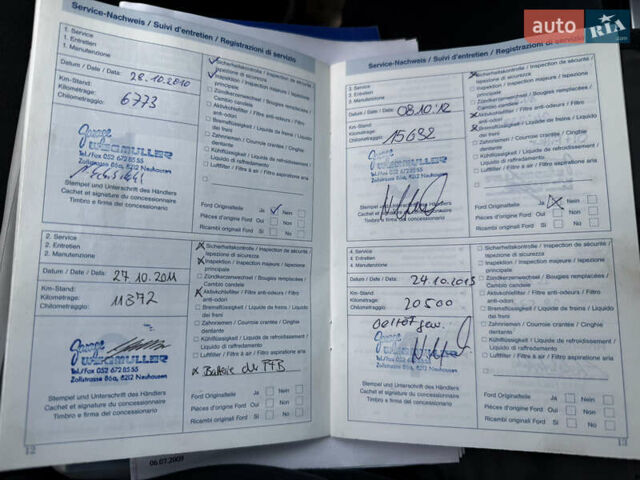 auto RIA.com
Service-Nachweis / Suivi d'entretien / Registrazioni di servizio
1. Service
1. Entretien
1. Manutenzione
Datum / Date / Data: 28.10.2010
Km-Stand:
Kilométrage:
Chilometraggio: 6773
Garage
WEGMÜLLER
Tel./Fax 052 672 85 55
Zollstrasse 86a, 8212 Neuhausen
Stempel und Unterschrift des Händlers
Cachet et signature du concessionnaire
Timbro e firma del concessionario
Sicherheitskontrolle / Inspection de sécurité /
Ispezione di sicurezza
Inspektion / Inspection majeure / Ispezione
principale
Zündkerzenwechsel / Bougies remplacées /
Cambio candele
Aktivkohlefilter / Filtre anti-odeurs / Filtro
anti-odori
Bremsflüssigkeit / Liquide de freins / Liquido
dei freni
Zahnriemen / Courroie crantée / Cinghia
dentata
Kühlflüssigkeit / Liquide de refroidissement /
Liquido di raffreddamento
Luftfilter / Filtre à air / Filtro aspirazione aria
Ford Originalteile Ja ✓ Nein
Pièces d'origine Ford Oui Non
Ricambi originali Ford Si No
2. Service
2. Entretien
2. Manutenzione
Datum / Date / Data: 27.10.2011
Km-Stand:
Kilométrage:
Chilometraggio: 11372
Garage
WEGMÜLLER
Tel./Fax 052 672 85 55
Zollstrasse 86a, 8212 Neuhausen
Stempel und Unterschrift des Händlers
Cachet et signature du concessionnaire
Timbro e firma del concessionario
Sicherheitskontrolle / Inspection de sécurité /
Ispezione di sicurezza
Inspektion / Inspection majeure / Ispezione
principale
Zündkerzenwechsel / Bougies remplacées /
Cambio candele
Aktivkohlefilter / Filtre anti-odeurs / Filtro
anti-odori
Bremsflüssigkeit / Liquide de freins / Liquido
dei freni
Zahnriemen / Courroie crantée / Cinghia
dentata
Kühlflüssigkeit / Liquide de refroidissement /
Liquido di raffreddamento
Luftfilter / Filtre à air / Filtro aspirazione aria
Ford Originalteile Ja Nein
Pièces d'origine Ford Oui Non
Ricambi originali Ford Si No
12
06.07.2009
Service-Nachweis / Suivi d'entretien / Registrazioni di servizio
3. Service
3. Entretien
3. Manutenzione
Datum / Date / Data: 08.10.12
Km-Stand:
Kilométrage:
Chilometraggio: 15682
Garage
WEGMÜLLER
Tel./Fax 052 672 85 55
Zollstrasse 86a, 8212 Neuhausen
Stempel und Unterschrift des Händlers
Cachet et signature du concessionnaire
Timbro e firma del concessionario
Sicherheitskontrolle / Inspection de sécurité /
Ispezione di sicurezza
Inspektion / Inspection majeure / Ispezione
principale
Zündkerzenwechsel / Bougies remplacées /
Cambio candele
Aktivkohlefilter / Filtre anti-odeurs / Filtro
anti-odori
Bremsflüssigkeit / Liquide de freins / Liquido
dei freni
Zahnriemen / Courroie crantée / Cinghia
dentata
Kühlflüssigkeit / Liquide de refroidissement /
Liquido di raffreddamento
Luftfilter / Filtre à air / Filtro aspirazione aria
Ford Originalteile Ja Nein
Pièces d'origine Ford Oui Non
Ricambi originali Ford Si No
4. Service
4. Entretien
4. Manutenzione
Datum / Date / Data: 24.10.2013
Km-Stand:
Kilométrage:
Chilometraggio: 20500
Garage
WEGMÜLLER
Tel./Fax 052 672 85 55
Zollstrasse 86a, 8212 Neuhausen
Stempel und Unterschrift des Händlers
Cachet et signature du concessionnaire
Timbro e firma del concessionario
Sicherheitskontrolle / Inspection de sécurité /
Ispezione di sicurezza
Inspektion / Inspection majeure / Ispezione
principale
Zündkerzenwechsel / Bougies remplacées /
Cambio candele
Aktivkohlefilter / Filtre anti-odeurs / Filtro
anti-odori
Bremsflüssigkeit / Liquide de freins / Liquido
dei freni
Zahnriemen / Courroie crantée / Cinghia
dentata
Kühlflüssigkeit / Liquide de refroidissement /
Liquido di raffreddamento
Luftfilter / Filtre à air / Filtro aspirazione aria
Ford Originalteile Ja Nein
Pièces d'origine Ford Oui Non
Ricambi originali Ford Si No
13